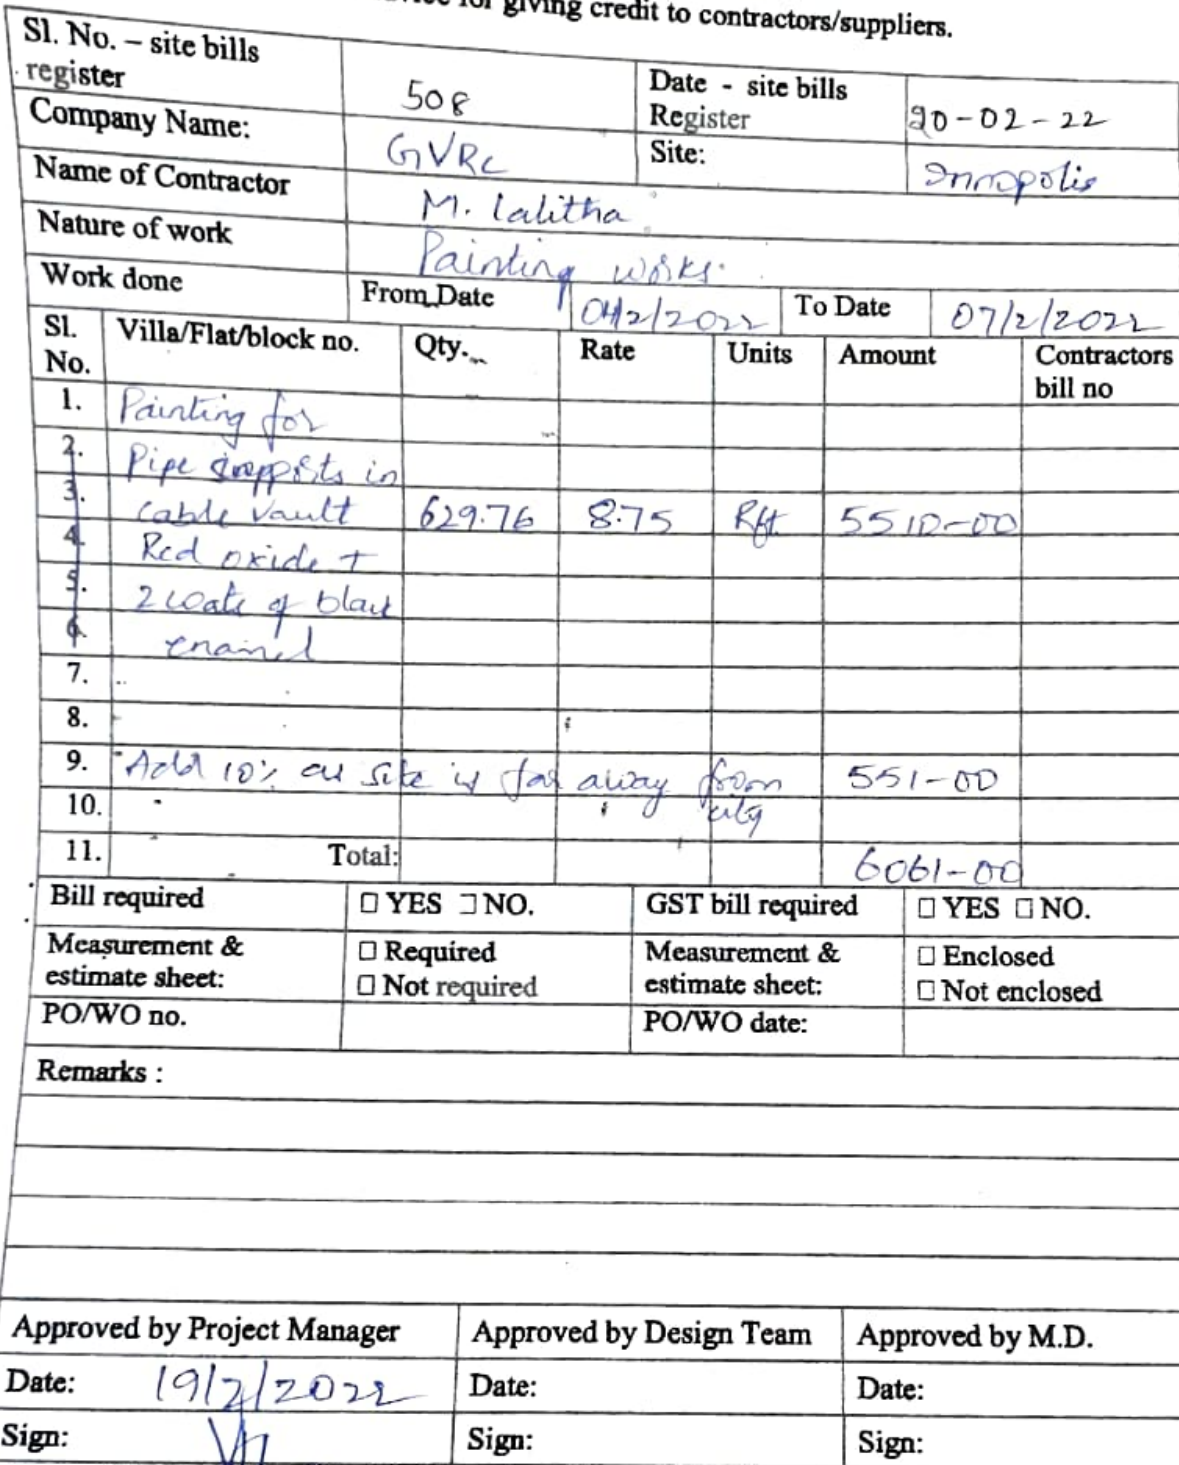 for giving credit to contractors/suppliers.
Sl. No. – site bills register 508 Date - site bills Register 20-02-22
Company Name: GVRC Site: Innopolis
Name of Contractor M. Lalitha
Nature of work Painting works.
Work done From Date 04/2/2022 To Date 07/2/2022
Sl. No. Villa/Flat/block no. Qty. Rate Units Amount Contractors bill no
1. Painting for
2. Pipe supports in
3. cable vault 629.76 8.75 Rft. 5510-00
4. Red oxide +
5. 2 coats of black
6. enamel
7.
8.
9. Add 10% as site is far away from 551-00
10. city
11. Total: 6061-00
Bill required ☐ YES ☐ NO. GST bill required ☐ YES ☐ NO.
Measurement & estimate sheet: ☐ Required ☐ Not required Measurement & estimate sheet: ☐ Enclosed ☐ Not enclosed
PO/WO no. PO/WO date:
Remarks :
Approved by Project Manager Approved by Design Team Approved by M.D.
Date: 19/2/2022 Date: Date:
Sign: Sign: Sign: